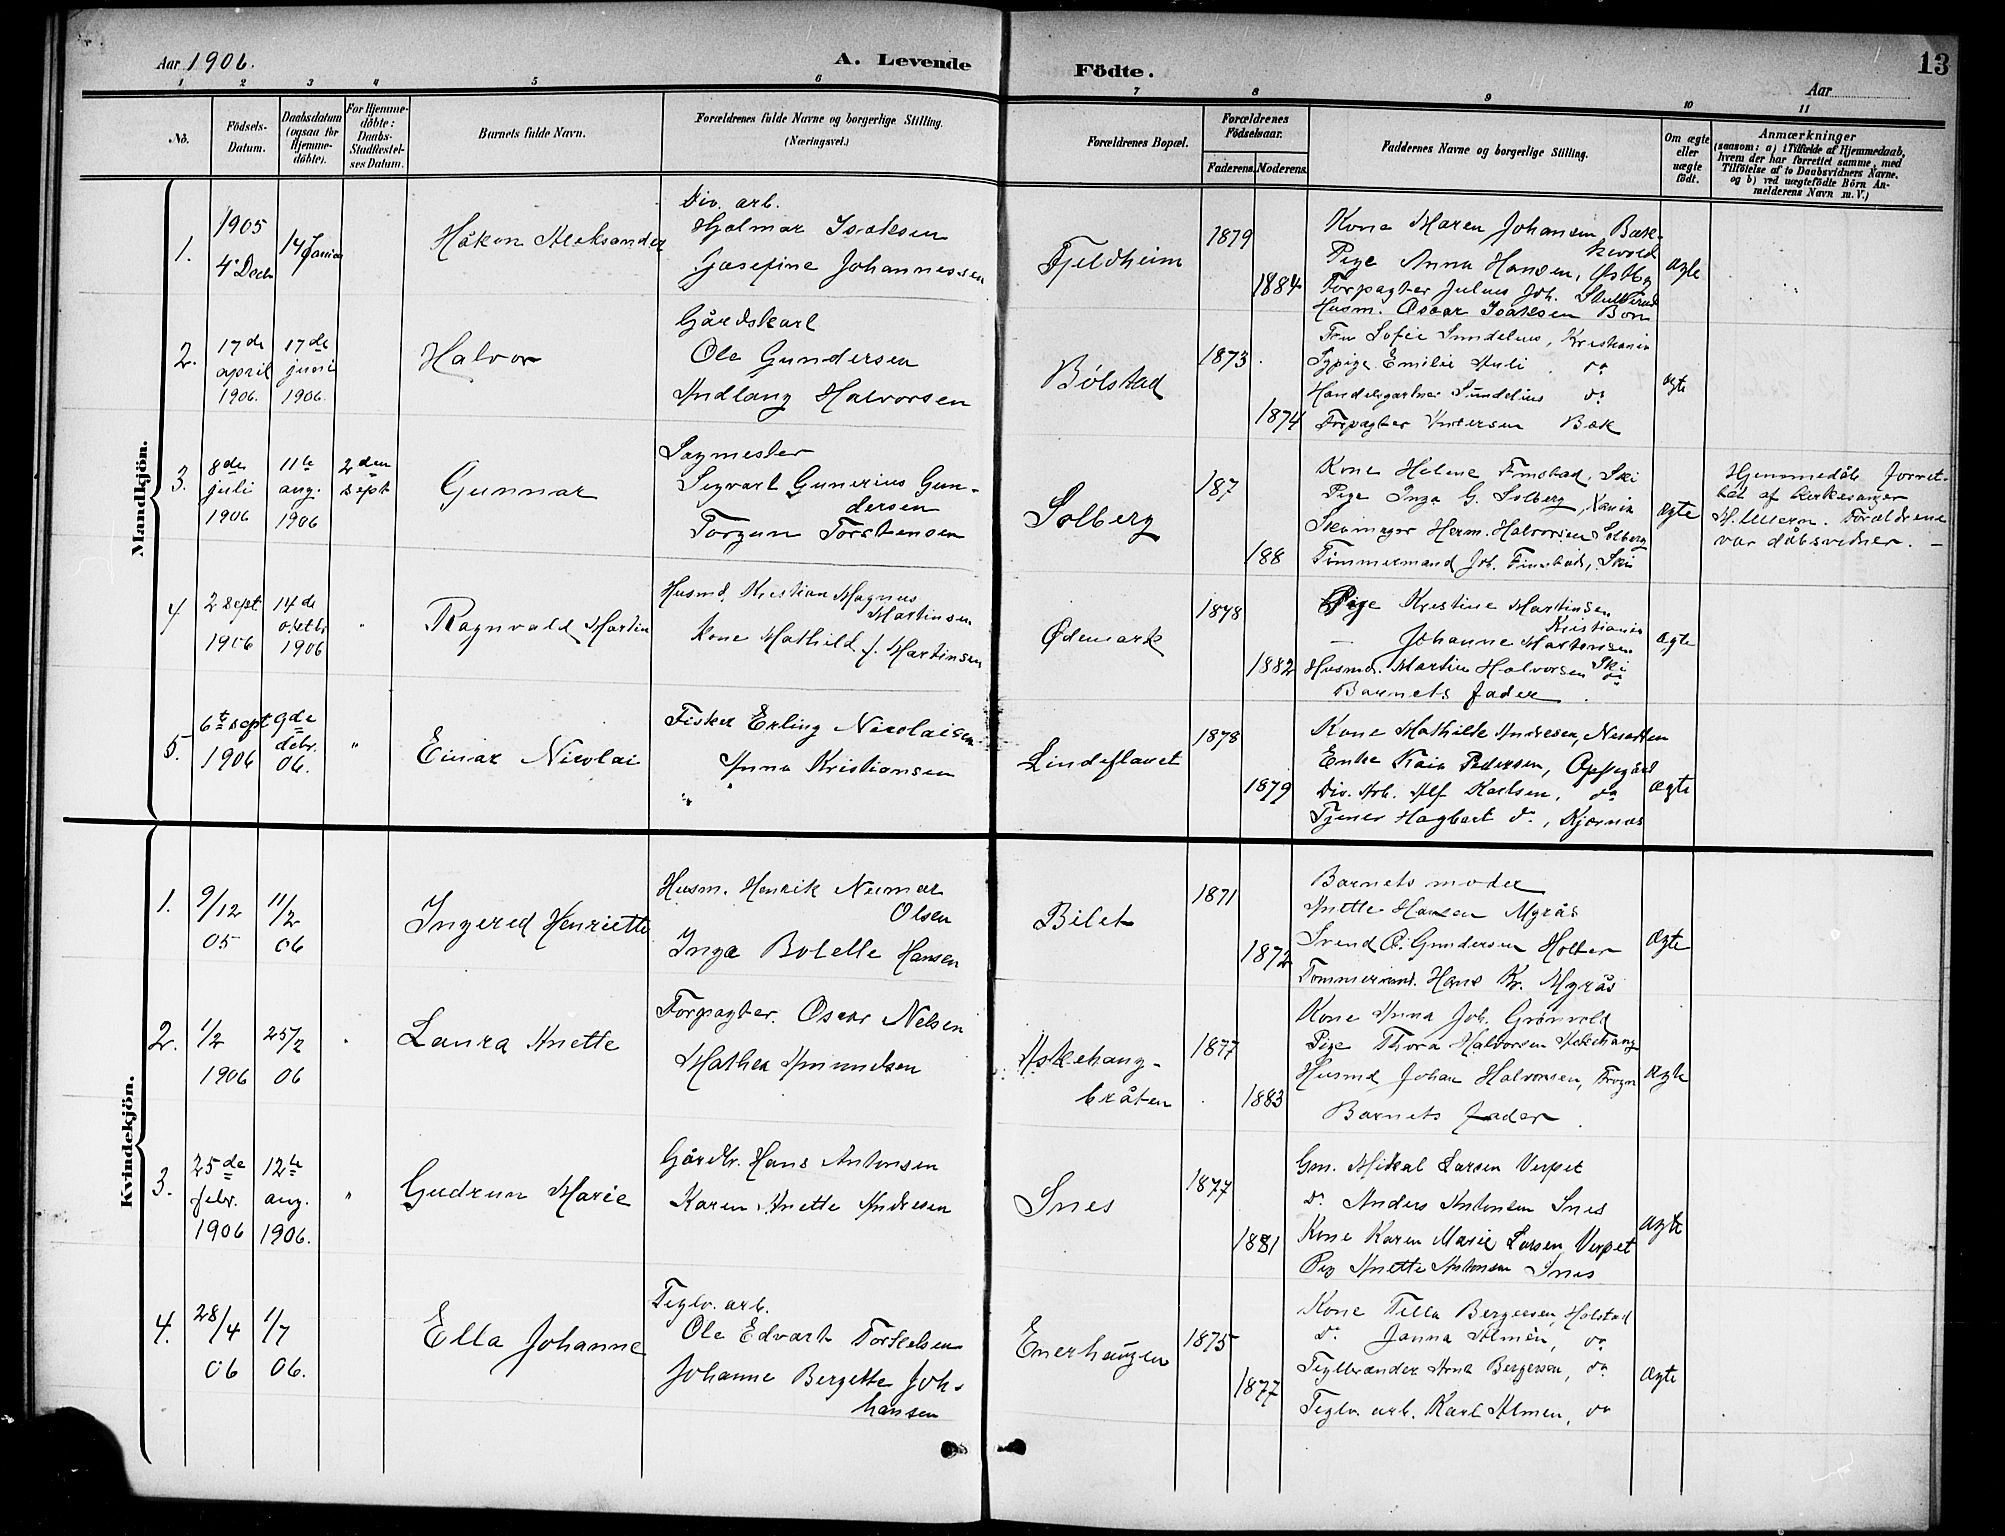 Aar 1906.
A. Levende
Födte.
Aar
13
1 2 3 4 5 6
7 8 9 10 11
No.
Födsels-
Datum.
Daabsdatum
(ogsaa for
Hjemme-
döbte).
For Hjemme-
döbte:
Daabs-
Stadfæstel-
ses Datum.
Barnets fulde Navn.
Forældrenes fulde Navne og borgerlige Stilling.
(Næringsvei.)
Forældrenes Bopæl.
Forældrenes
Födselsaar.
Faderens. Moderens.
Faddernes Navne og borgerlige Stilling.
Om ægte
eller
uægte
födt.
Anmærkninger
(saasom: a) i Tilfælde af Hjemmedaab,
hvem der har forrettet samme, med
Tilföielse af to Daabsvidners Navne.
og b) ved uægtefödte Börn An-
melderens Navn m. V.)
Mandkjön.
1.
1905
4de Decb
14 Januar
Håkon Aleksander
Div. arb.
Hjalmar Isaksen
Josefine Johannessen
Fjeldheim
1879
1884
Kone Maren Johansen, Bæk-
kevold
Pige Anna Hansen,
Forpagter Julius Joh.
Husm. Oscar Isaksen Bonn
ægte
2.
17de
april
1906.
17de
juni
1906.
Halvor
Gårdskarl
Ole Gundersen
Andlaug Halvorsen
Bölstad
1873
1874
Fru Sofie Sundelius, Kristiania
Sypige Emilie Auli do
Handelsgartner Sundelius do
Forpagter Andersen Bæk
ægte
3.
8de
juli
1906
11te
aug.
1906
2den
sept
Gunnar
Sagmester
Sigvart Gunerius Gun-
dersen
Torgun Torstensen
Solberg
187
188
Kone Helene Finstad, Ski
Pige Inga G. Solberg, Kania
Skomager Herm. Halvorsen Solberg
Tömmermand Joh. Finstad, Ski
ægte
Hjemmedåb forret-
tet af kirkesanger
Forældrene
var dåbsvidner. -
4
2 sept
1906
14de
oktb
1906
"
Ragnvald Martin
Husmd. Kristian Magnus
Martinsen
Kone Mathild J. Martinsen
Ødemark
1878
1882
Pige Kristine Martinsen
Kristiania
- Johanne Martinsen
Ski
Husmd. Martin Halvorsen do
Barnets fader
ægte
5.
6te sept
1906
9de
debr.
06.
"
Einar Nicolai
Fisker Erling Nicolaisen
" Anna Kristiansen
Lindeflaaet
1878
1879
Kone Mathilde Andresen, Nesodden
Enke Kaia Pedersen, Opsegård
Div. Arb. Alf Karlsen, do
Tjener Hagbart do, Kjærnes
ægte
Kvindekjön.
1.
9/12
05
11/2
06
Ingered Henriette
Husm. Henrik Numar
Olsen
Inga Botelle Hansen
Bilet
1871
1872
Barnets moder
Anette Hansen Myrås
Svend O. Gundersen Holter
Tømmermd. Hans Kr. Myrås
ægte
2.
1/2
1906
25/2
06
"
Laura Anette
Forpagter. Oscar Nelsen
Mathea Amundsen
Askehaug-
bråten
1877
1883
Kone Anna Joh. Grönvold
Pige Thora Halvorsen Askehaug
Husmd Johan Halvorsen, Frogn
Barnets fader
ægte
3.
25de
febr.
1906
12te
aug.
1906.
"
Gudrun Marie
Gårdbr. Hans Antonsen
Karen Anette Andresen
Snes
1877
1881
Gm. Mikal Larsen Verpet
do Anders Antonsen Snes
Kone Karen Marie Larsen Verpet
Pig Anette Antonsen Snes
ægte
4.
28/4
06
1/7
06.
Ella Johanne
Teglv. arb.
Ole Edvart Torkelsen
Johanne Bergette Joh-
hansen
Enerhaugen
1875
1877
Kone Tilla Bergersen, Holstad
do Janna Almén, do
Teglbrænder Arne Bergersen, do
Teglv. arb. Karl Almen, do
ægte